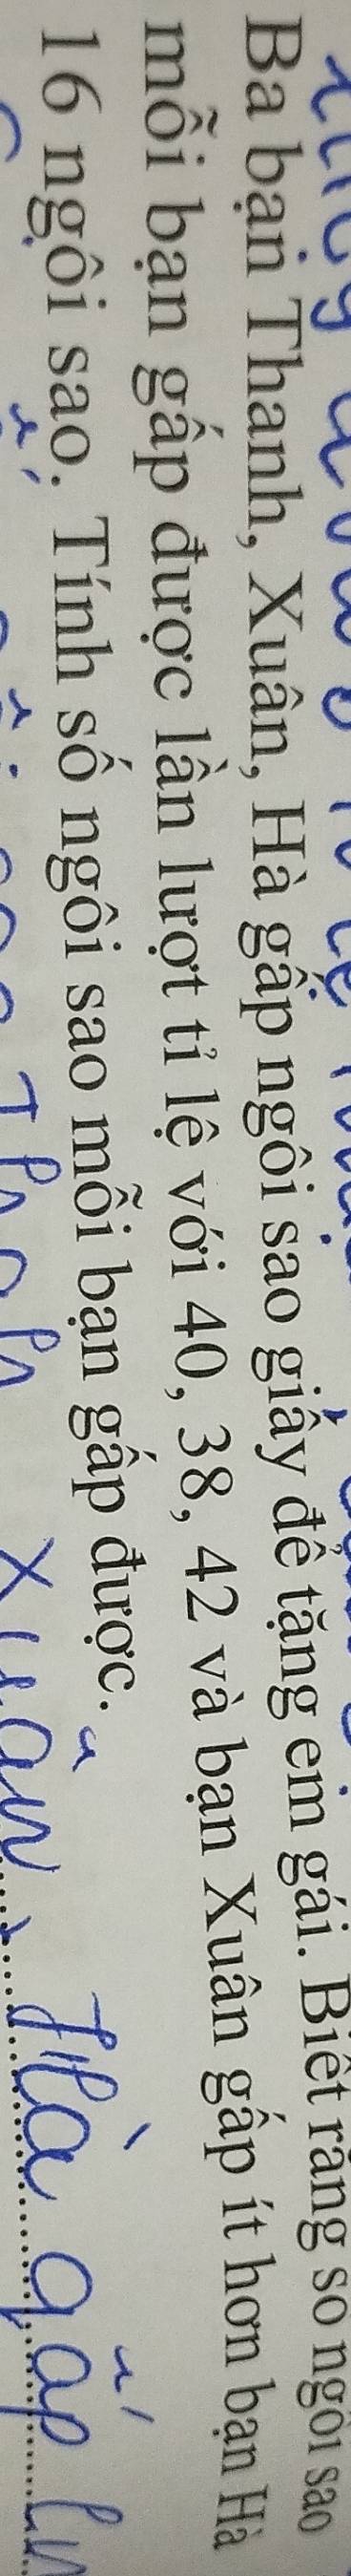 Ba bạn Thanh, Xuân, Hà gấp ngôi sao giấy để tặng em gái. Biết rằng số ngôi sao
mỗi bạn gấp được lần lượt tỉ lệ với 40, 38, 42 và bạn Xuân gấp ít hơn bạn Hà
16 ngôi sao. Tính số ngôi sao mỗi bạn gấp được.
Xuân, Hà gấp